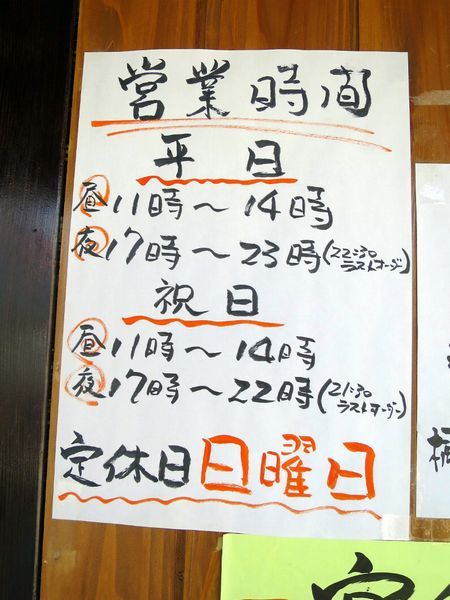 営業時間
平日
昼 11時〜14時
夜 17時〜23時(22:30ラストオーダー)
祝日
昼 11時〜14時
夜 17時〜22時(21:30ラストオーダー)
定休日 日曜日